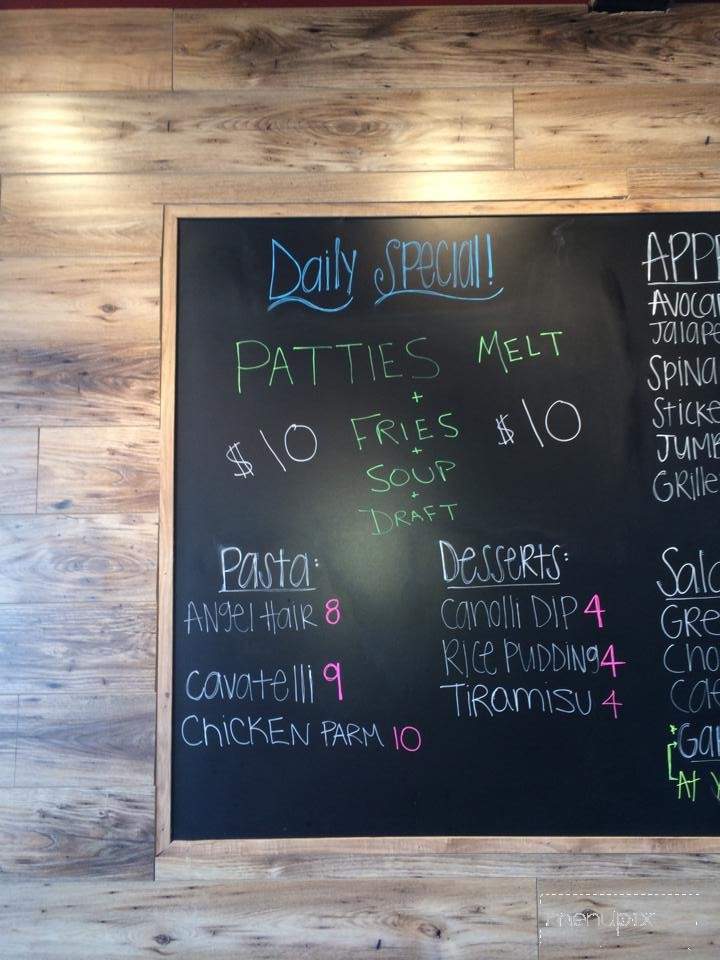 Daily Special!
PATTIES MELT
+
$10 FRIES $10
+
SOUP
+
DRAFT
Pasta:
Angel Hair 8
Cavatelli 9
CHICKEN PARM 10
Desserts:
Canolli Dip 4
Rice Pudding 4
Tiramisu 4
APP
Avoca
Jalape
Spina
Sticke
Jumb
Grille
Sala
Gre
Cho
Cae
*Gar
At
menupix